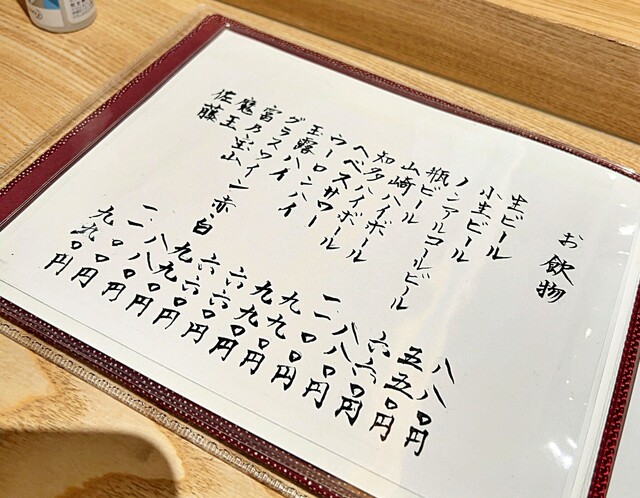 お飲物
生ビール 八八〇円
小生ビール 五五〇円
ノンアルコールビール 六六〇円
瓶ビール 八八〇円
山崎ハイボール 一、一〇〇円
知多ハイボール 九九〇円
ヘベスサワー 九九〇円
ウーロンハイ 六六〇円
玉露ハイ 六六〇円
グラスワイン赤白 九九〇円
富乃宝山 八八〇円
魔王 一、一〇〇円
佐藤 九九〇円